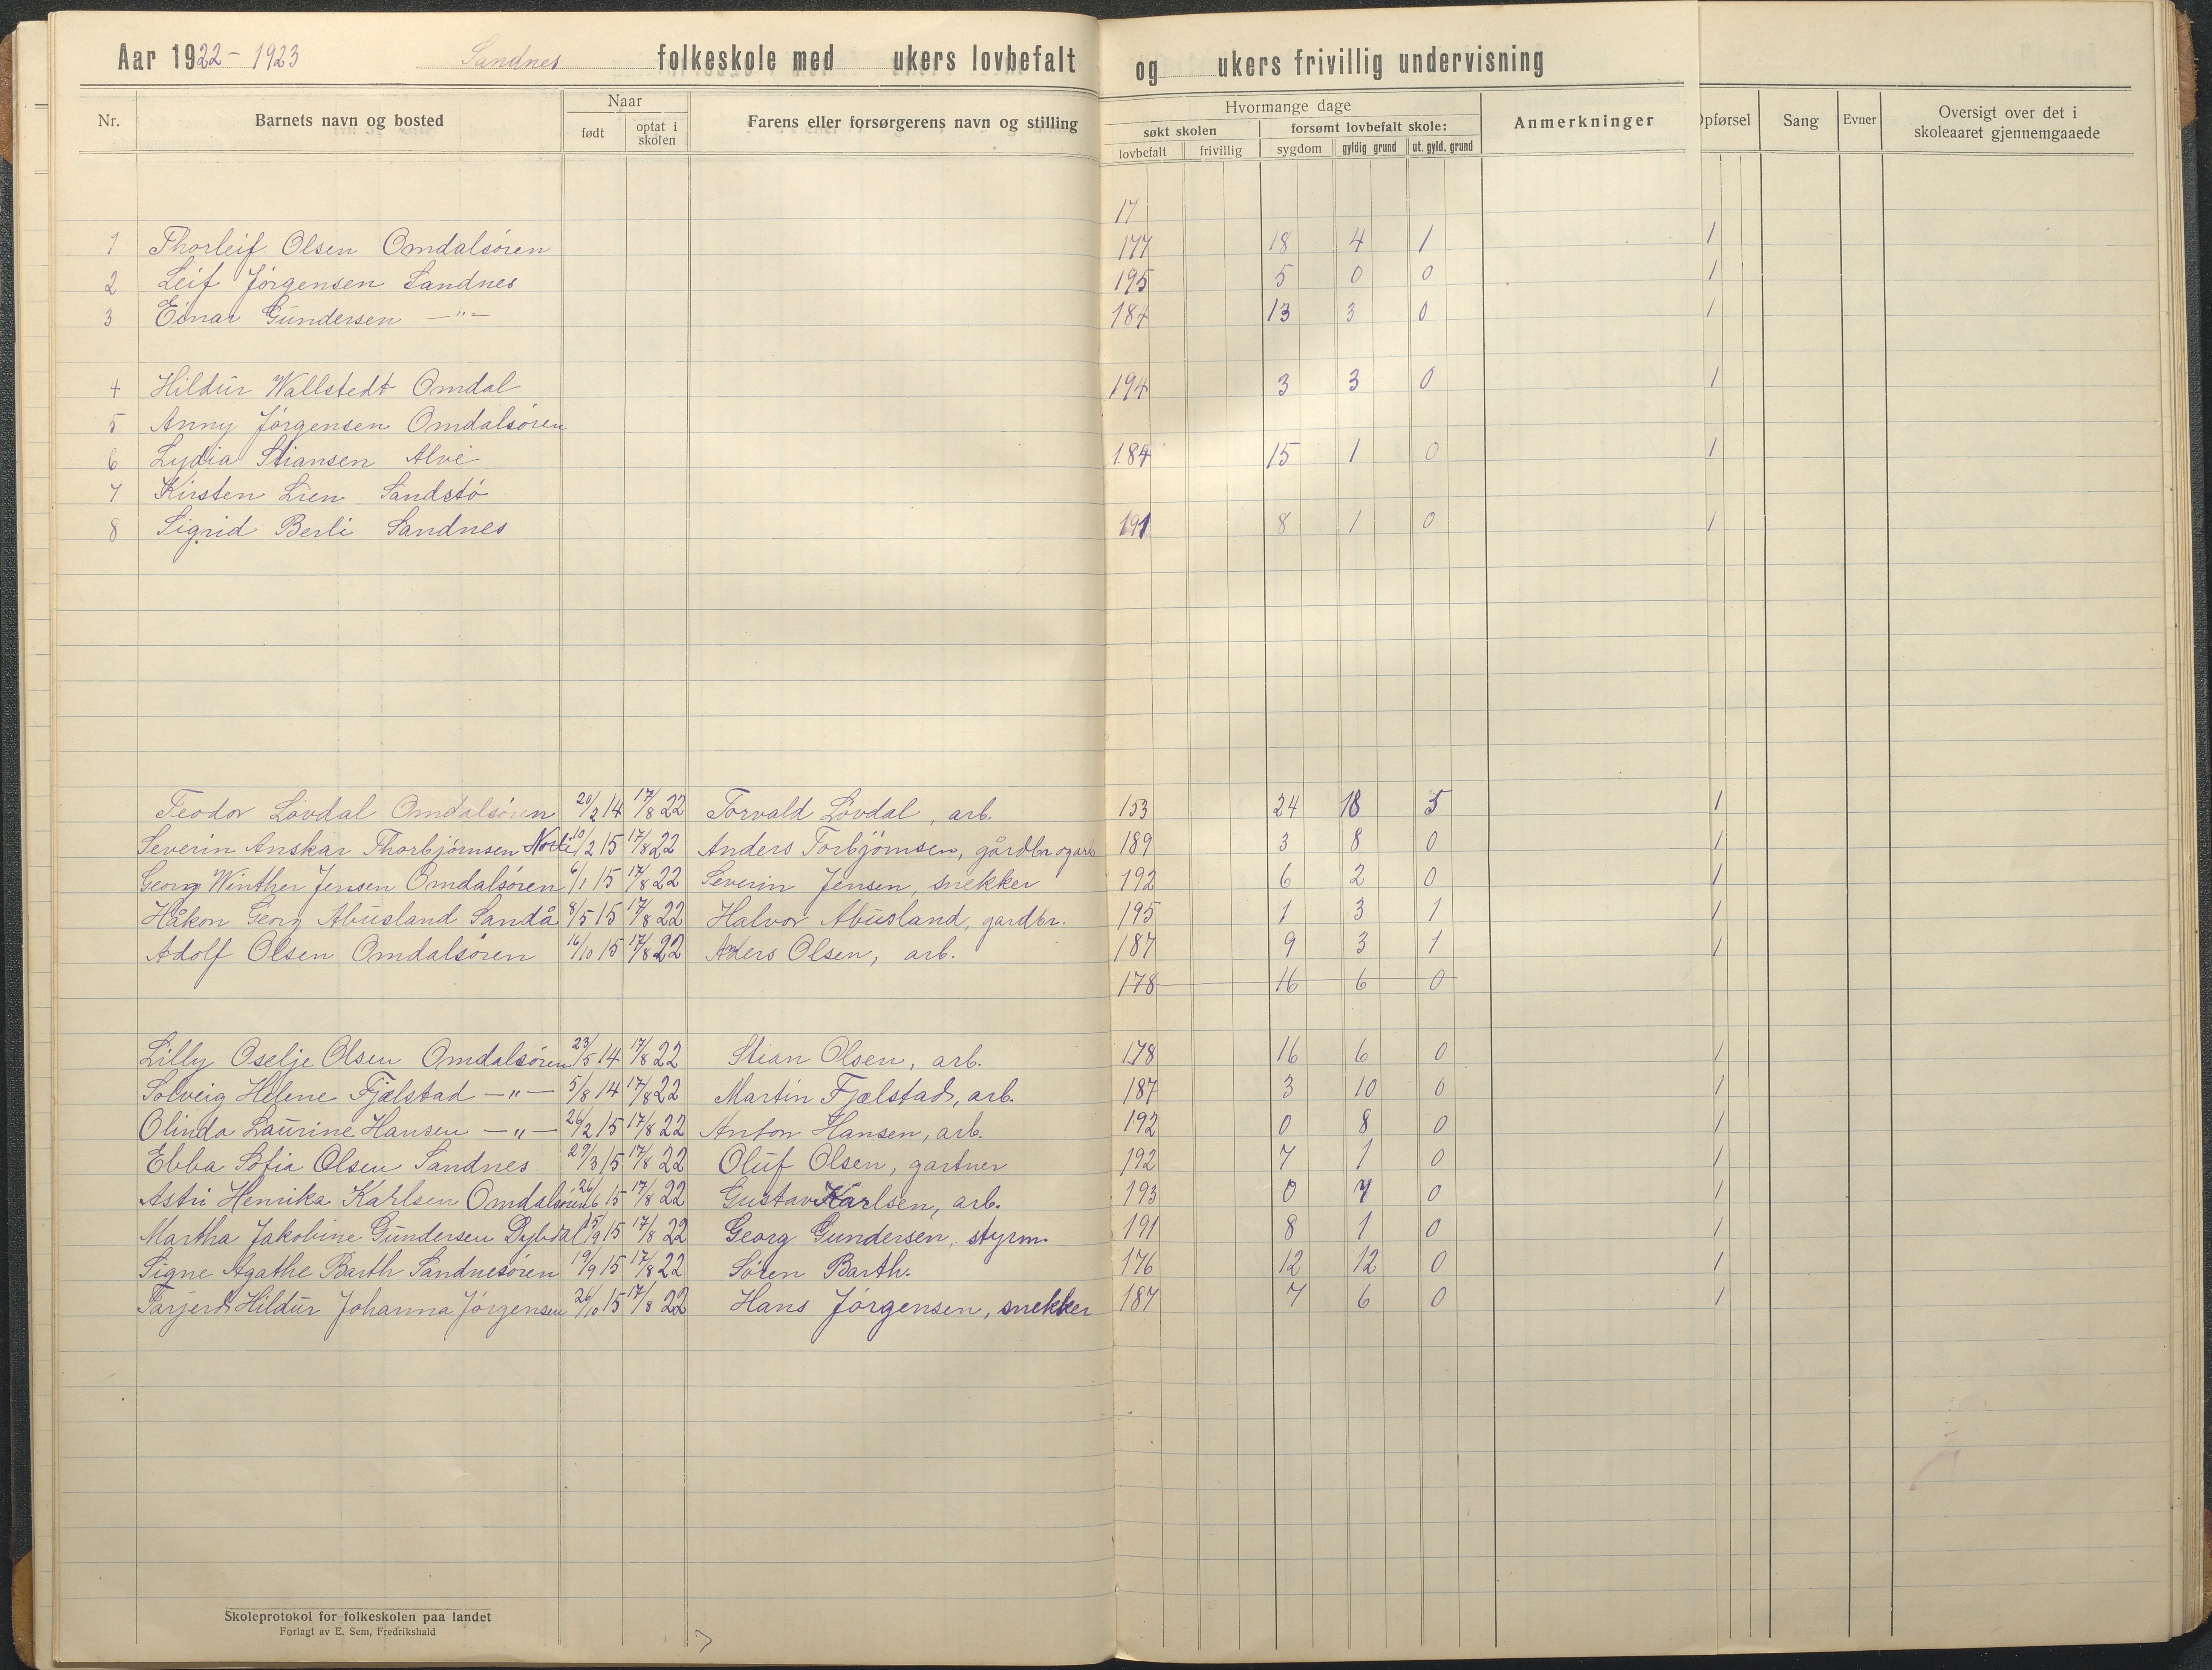 Aar 1922-1923 Sandnes folkeskole med ukers lovbefalt og ukers frivillig undervisning
Nr. Barnets navn og bosted Naar født optat i skolen Farens eller forsørgerens navn og stilling Hvormange dage søkt skolen lovbefalt frivillig forsømt lovbefalt skole: sygdom gyldig grund ut. gyld. grund Anmerkninger Opførsel Sang Evner Oversigt over det i skoleaaret gjennemgaaede
17
1 Thorleif Olsen Omdalsøren 177 18 4 1 1
2 Leif Jörgensen Sandnes 195 5 0 0 1
3 Einar Gundersen —"— 184 13 3 0 1
4 Hildur Wallstedt Omdal 194 3 3 0 1
5 Anny Jörgensen Omdalsøren
6 Lydia Stiansen Alve 184 15 1 0 1
7 Kirsten Lien Sandstö
8 Sigrid Berli Sandnes 191 8 1 0 1
Teodor Lövdal Omdalsøren 20/2 14 17/8 22 Torvald Lövdal, arb. 153 24 18 5 1
Severin Anskar Thorbjörnsen 10/2 15 17/8 22 Anders Torbjörnsen, gårdbr og arb 189 3 8 0 1
Georg Winther Jensen Omdalsøren 6/1 15 17/8 22 Severin Jensen, snekker 192 6 2 0 1
Håkon Georg Abusland Sandå 8/5 15 17/8 22 Halvor Abusland, gardbr. 195 1 3 1 1
Adolf Olsen Omdalsøren 16/10 15 17/8 22 Anders Olsen, arb. 187 9 3 1 1
178 16 6 0
Lilly Oselje Olsen Omdalsøren 23/5 14 17/8 22 Stian Olsen, arb. 178 16 6 0 1
Solveig Helene Fjælstad —"— 5/8 14 17/8 22 Martin Fjælstad, arb. 187 3 10 0 1
Olinda Laurine Hansen —"— 26/2 15 17/8 22 Anton Hansen, arb. 192 0 8 0 1
Ebba Sofia Olsen Sandnes 29/3 15 17/8 22 Oluf Olsen, gartner 192 7 1 0 1
Astri Henrika Karlsen Omdalsøren 26/6 15 17/8 22 Gustav Karlsen, arb. 193 0 7 0 1
Martha Jakobine Gundersen Dybdal 15/9 15 17/8 22 Georg Gundersen, styrm. 191 8 1 0 1
Signe Agathe Barth Sandnesøren 19/9 15 17/8 22 Sören Barth. 176 12 12 0 1
Tarjerd Hildur Johanna Jörgensen 26/10 15 17/8 22 Hans Jörgensen, snekker 187 7 6 0 1
Skoleprotokol for folkeskolen paa landet
Forlagt av E. Sem, Fredrikshald